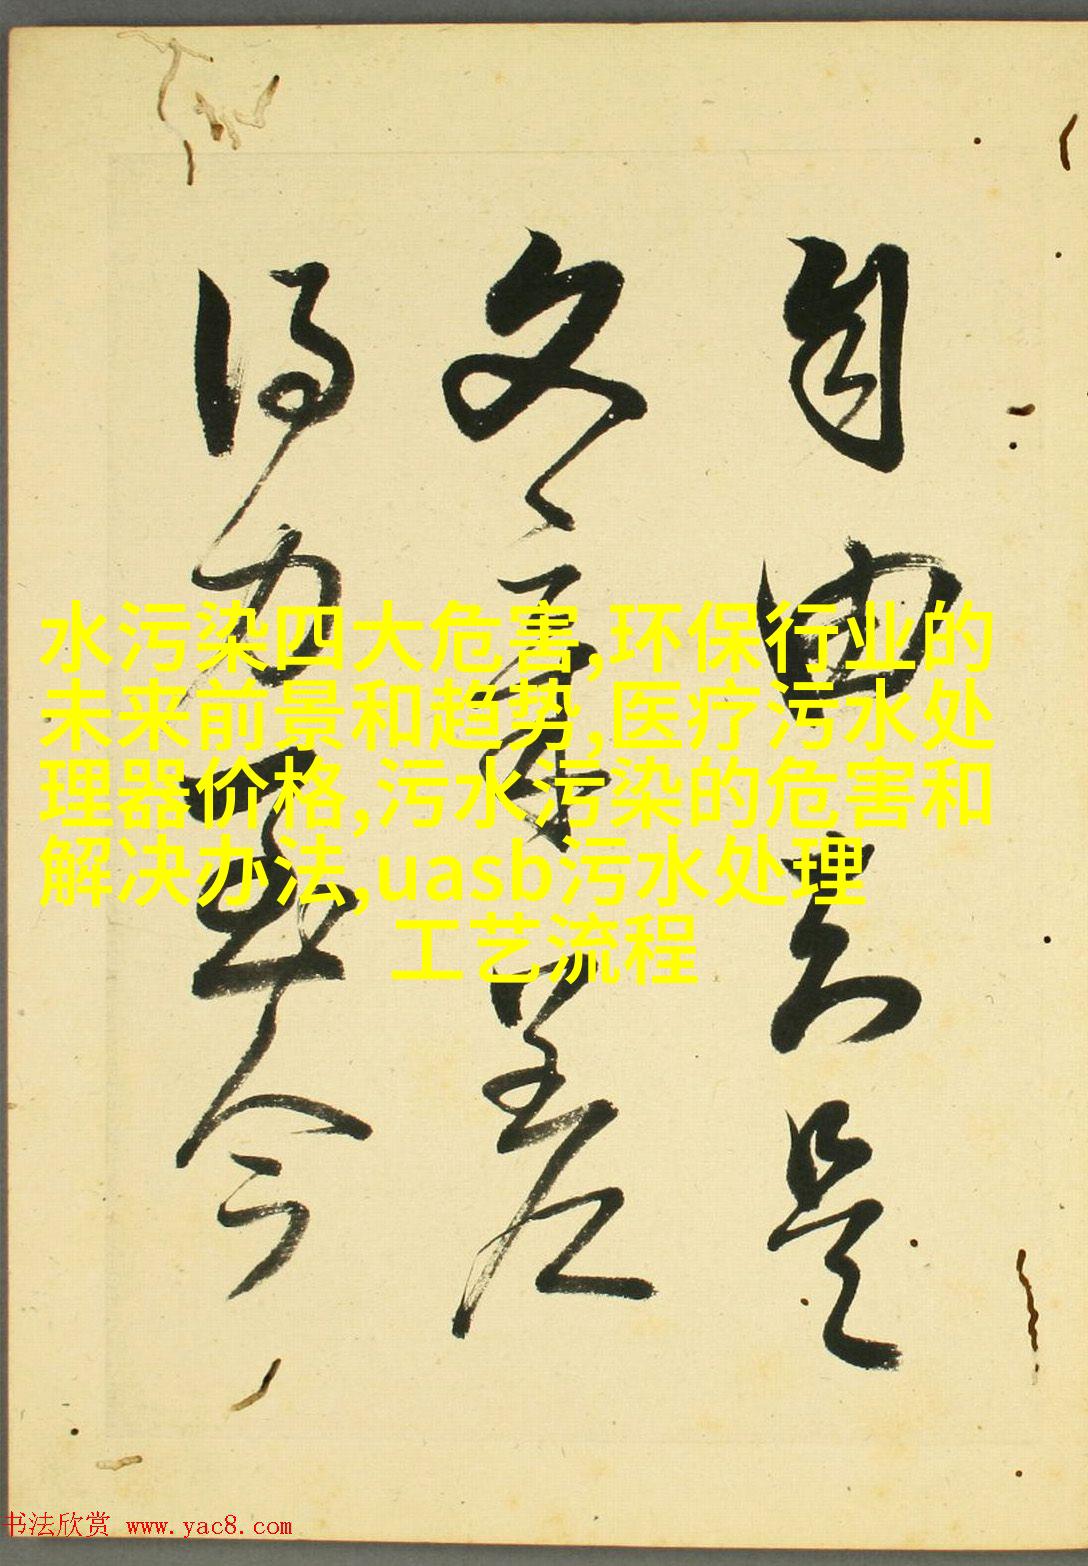 自由是
文章差
得力今
水污染四大危害,环保行业的
未来前景和趋势,医疗污水处
理器价格,污水污染的危害和
解决办法,uasb污水处理
工艺流程
书法欣赏 www.yac8.com